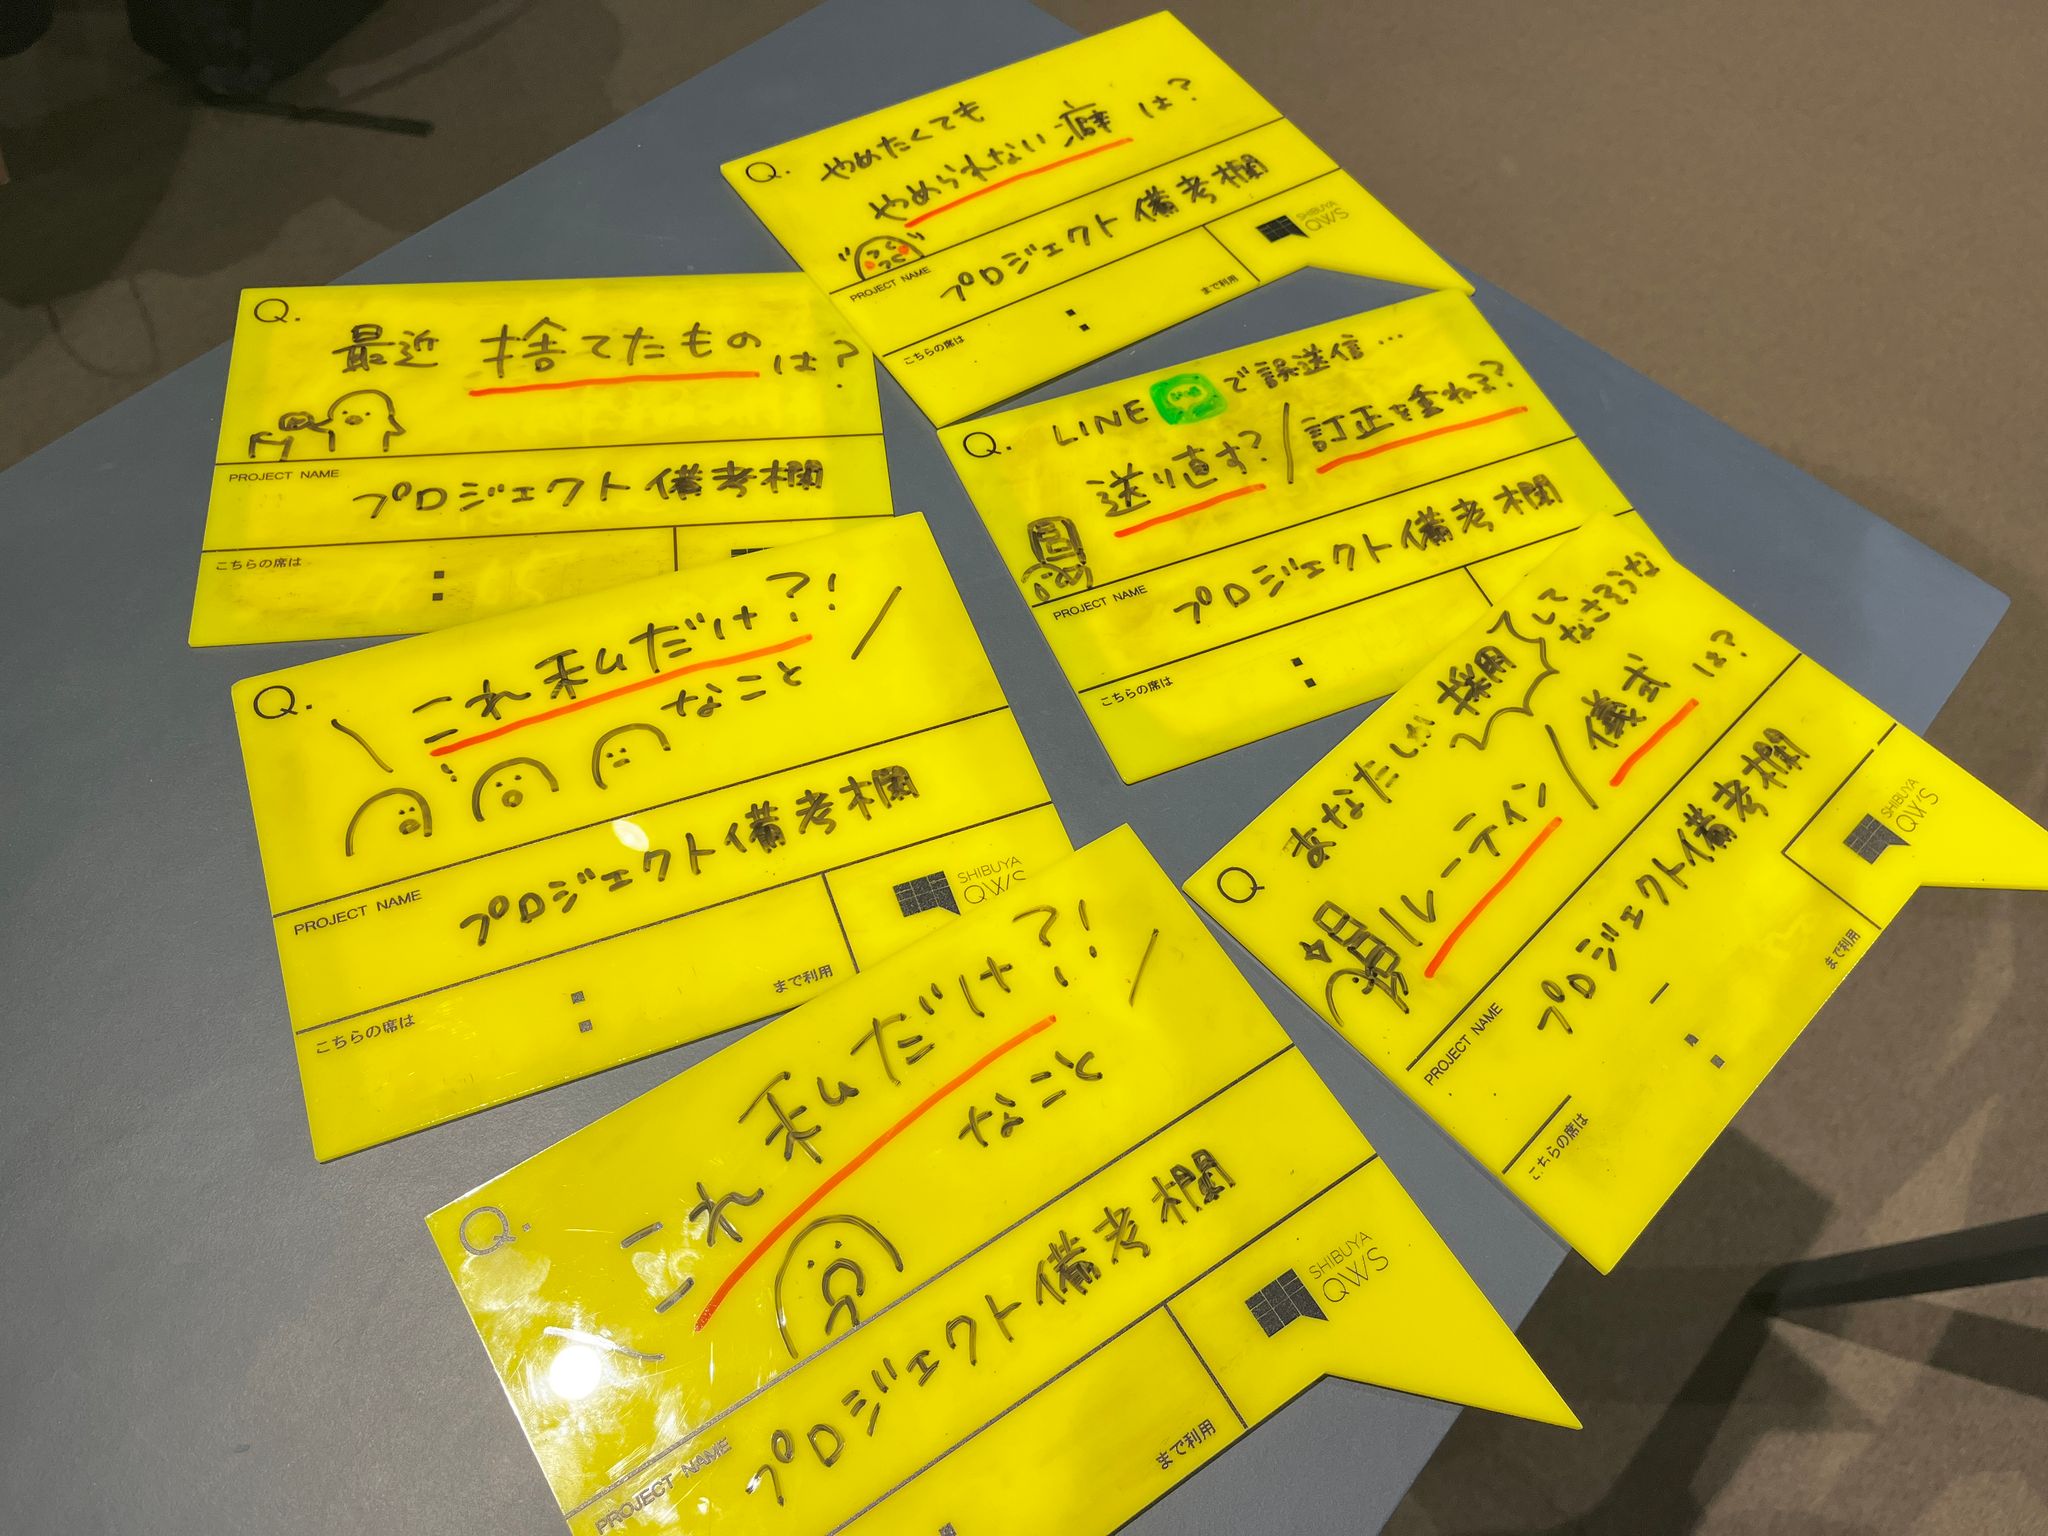 Q.
やめたくても
やめられない癖は?
PROJECT NAME
プロジェクト備考欄
こちらの席は
:
まで利用
SHIBUYA
QWS
Q.
最近 捨てたものは?
PROJECT NAME
プロジェクト備考欄
こちらの席は
:
Q.
LINEで誤送信…
送り直す?/訂正を重ねる?
PROJECT NAME
プロジェクト備考欄
こちらの席は
:
Q.
\ これ私だけ?! /
なこと
PROJECT NAME
プロジェクト備考欄
こちらの席は
:
まで利用
SHIBUYA
QWS
Q
あなたしか採用してなさそうな
ルーティン/儀式は?
PROJECT NAME
プロジェクト備考欄
こちらの席は
:
まで利用
SHIBUYA
QWS
Q.
\ これ私だけ?! /
なこと
PROJECT NAME
プロジェクト備考欄
まで利用
SHIBUYA
QWS